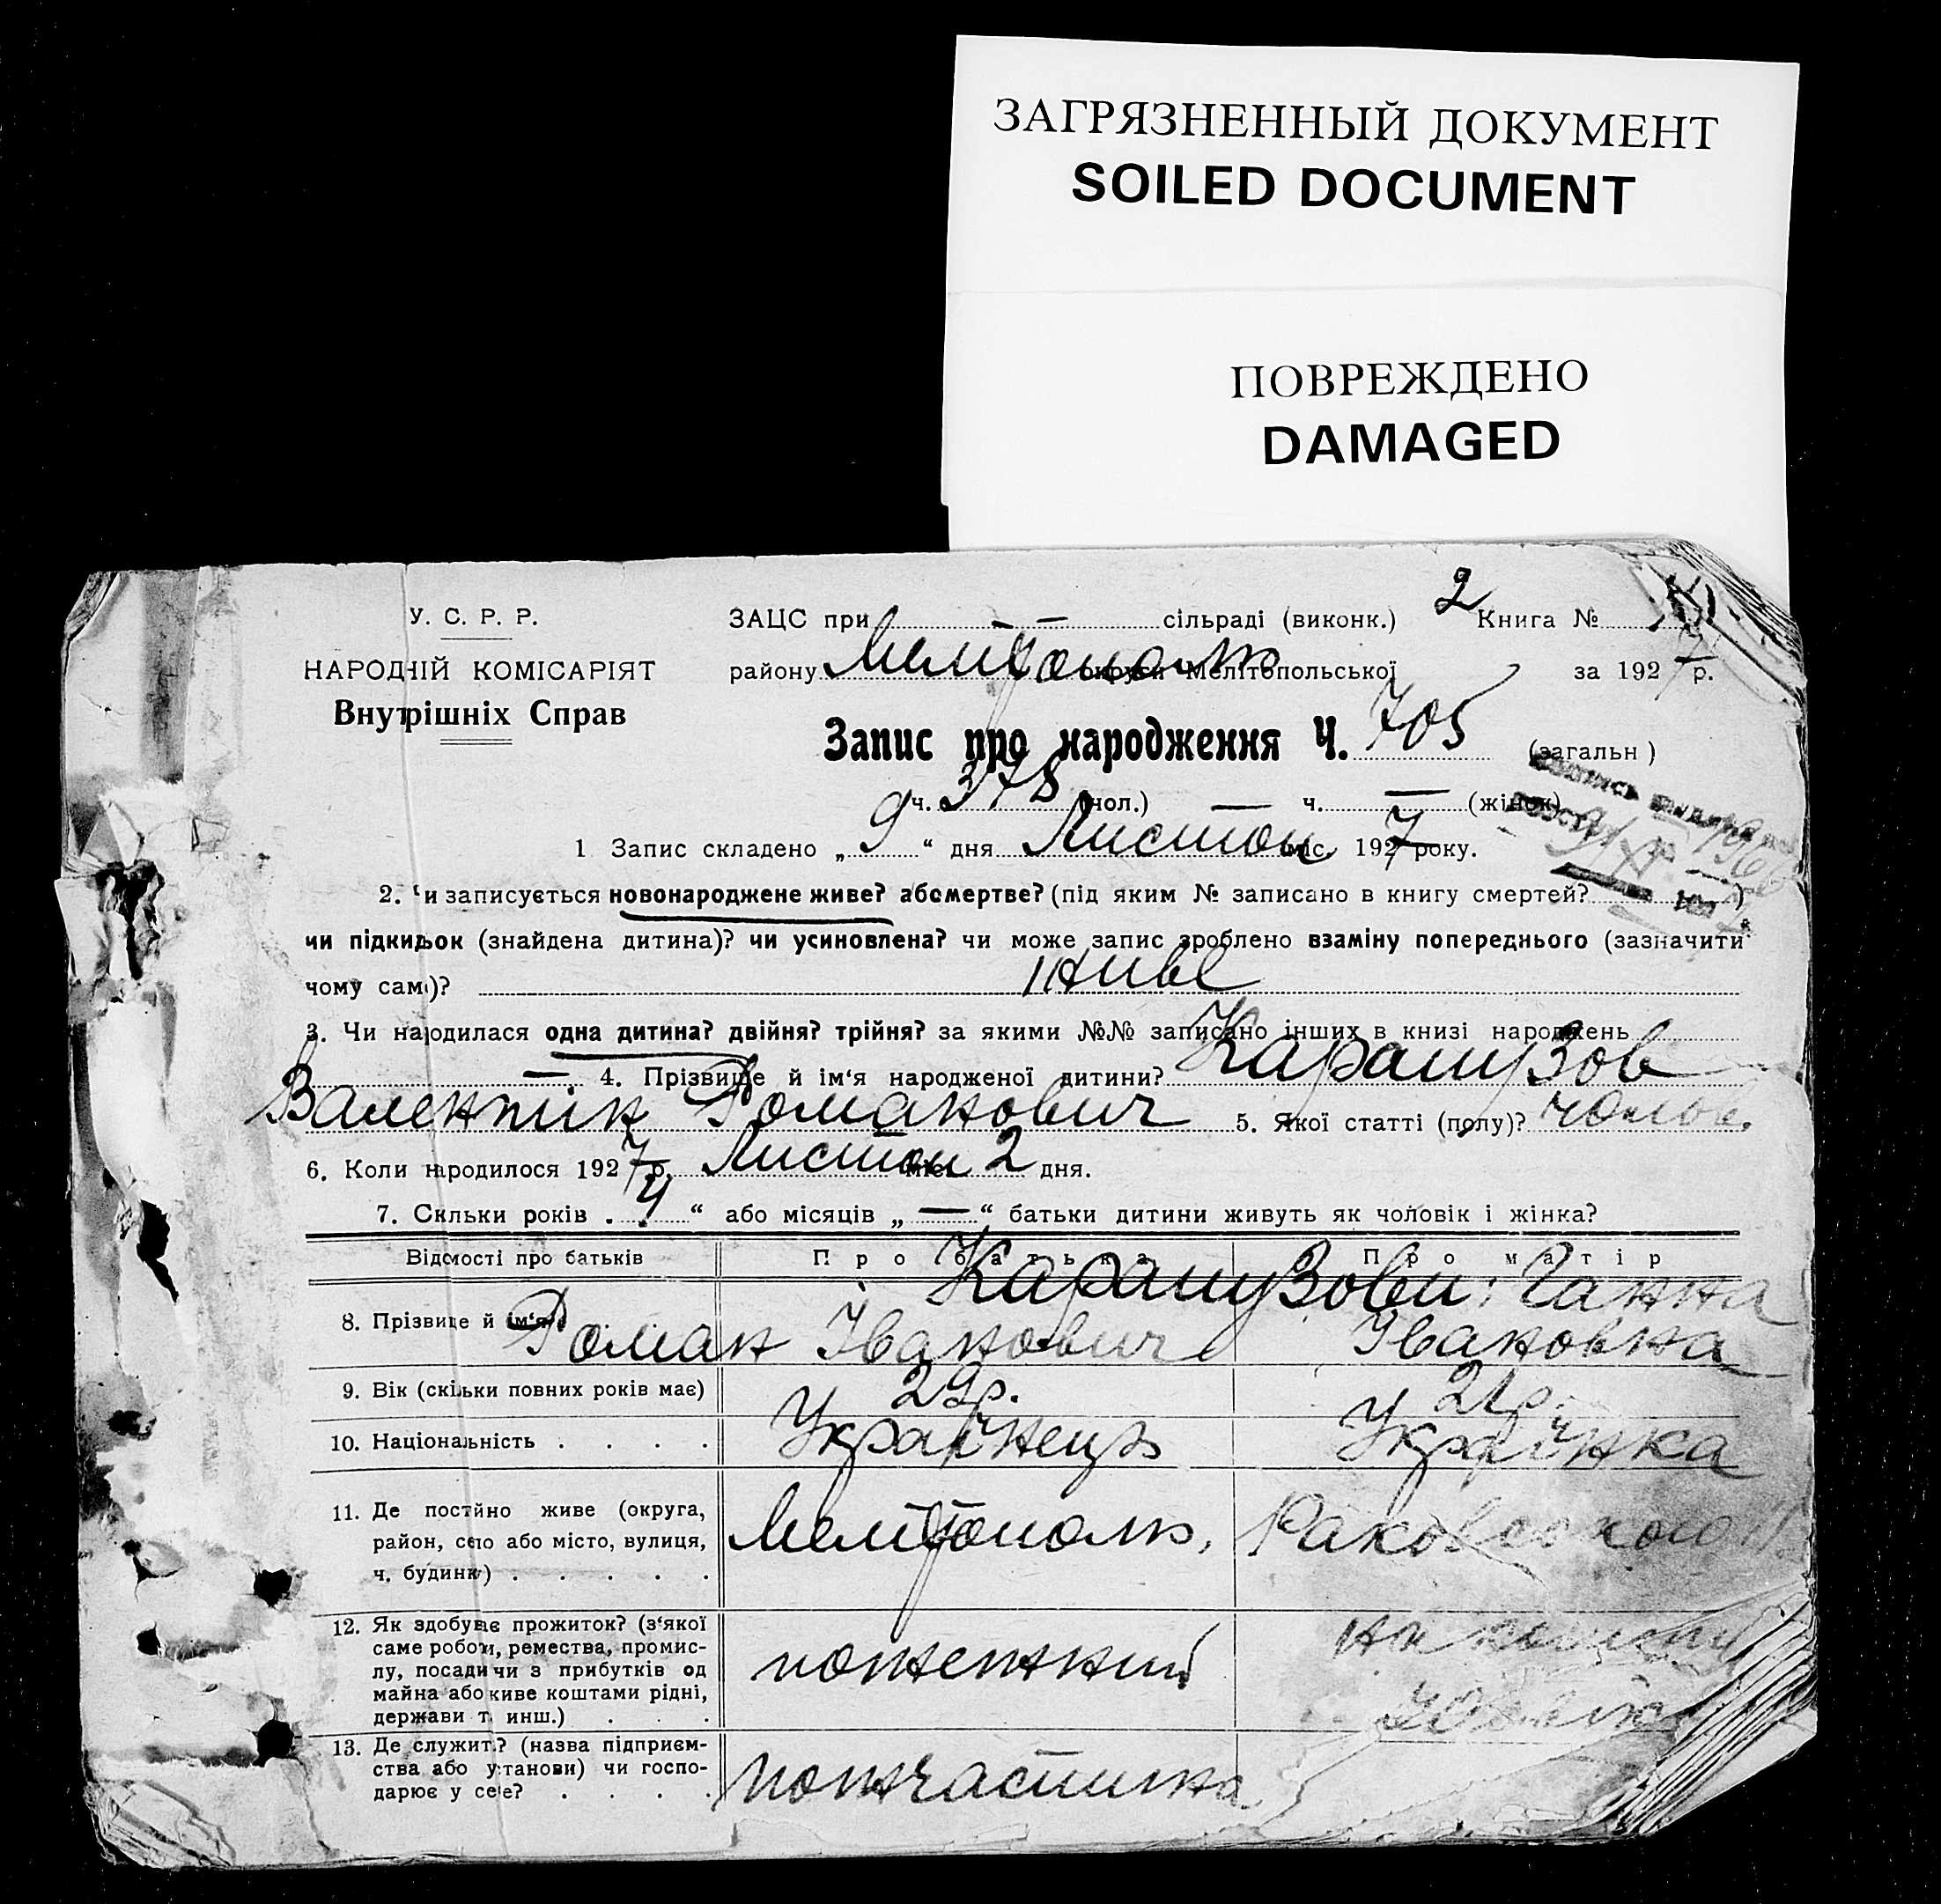 ЗАГРЯЗНЕННЫЙ ДОКУМЕНТ
SOILED DOCUMENT
ПОВРЕЖДЕНО
DAMAGED
У. С. Р. Р.
НАРОДНІЙ КОМІСАРІЯТ
Внутрішніх Справ
ЗАЦС при — сільраді (виконк.) 2 Книга №
району Мелітополь округи Мелітопольської за 1927 р.
Запис про народження Ч. 705 (загальн)
ч. 378 (чол.) — ч. — (жінок)
1 Запис складено „ 9 “ дня Листоп міс. 1927 року.
2. Чи записується новонароджене живе? або мертве? (під яким № записано в книгу смертей? )
чи підкидьок (знайдена дитина)? чи усиновлена? чи може запис зроблено взаміну попереднього (зазначити
чому само)? живе
3. Чи народилася одна дитина? двійня? трійня? за якими №№ записано інших в книзі народжень
— 4. Прізвище й ім‘я народженої дитини? Карашузов
Валентін Романович 5. Якої статті (полу)? чолов.
6. Коли народилося 1927 р. Листоп міс. 2 дня.
7. Скільки років „ 4 “ або місяців „ — “ батьки дитини живуть як чоловік і жінка?
Відомості про батьків Про батька Про матір
Карашузови: Ганна
8. Прізвище й ім‘я Роман Іванович Івановна
9. Вік (скільки повних років має) 29 р. 21 р.
10. Національність . . . . Українець Українка
11. Де постійно живе (округа,
район, село або місто, вулиця,
ч. будинку) . . . . .
Мелітополь, Раковського
12. Як здобуває прожиток? (з‘якої
саме роботи, ремества, промис-
лу, посади чи з прибутків од
майна або живе коштами рідні,
держави т. инш.) . . .
пожежний
13. Де служить? (назва підприєм-
ства або установи) чи госпо-
дарює у себе? . . . .
пожчастина